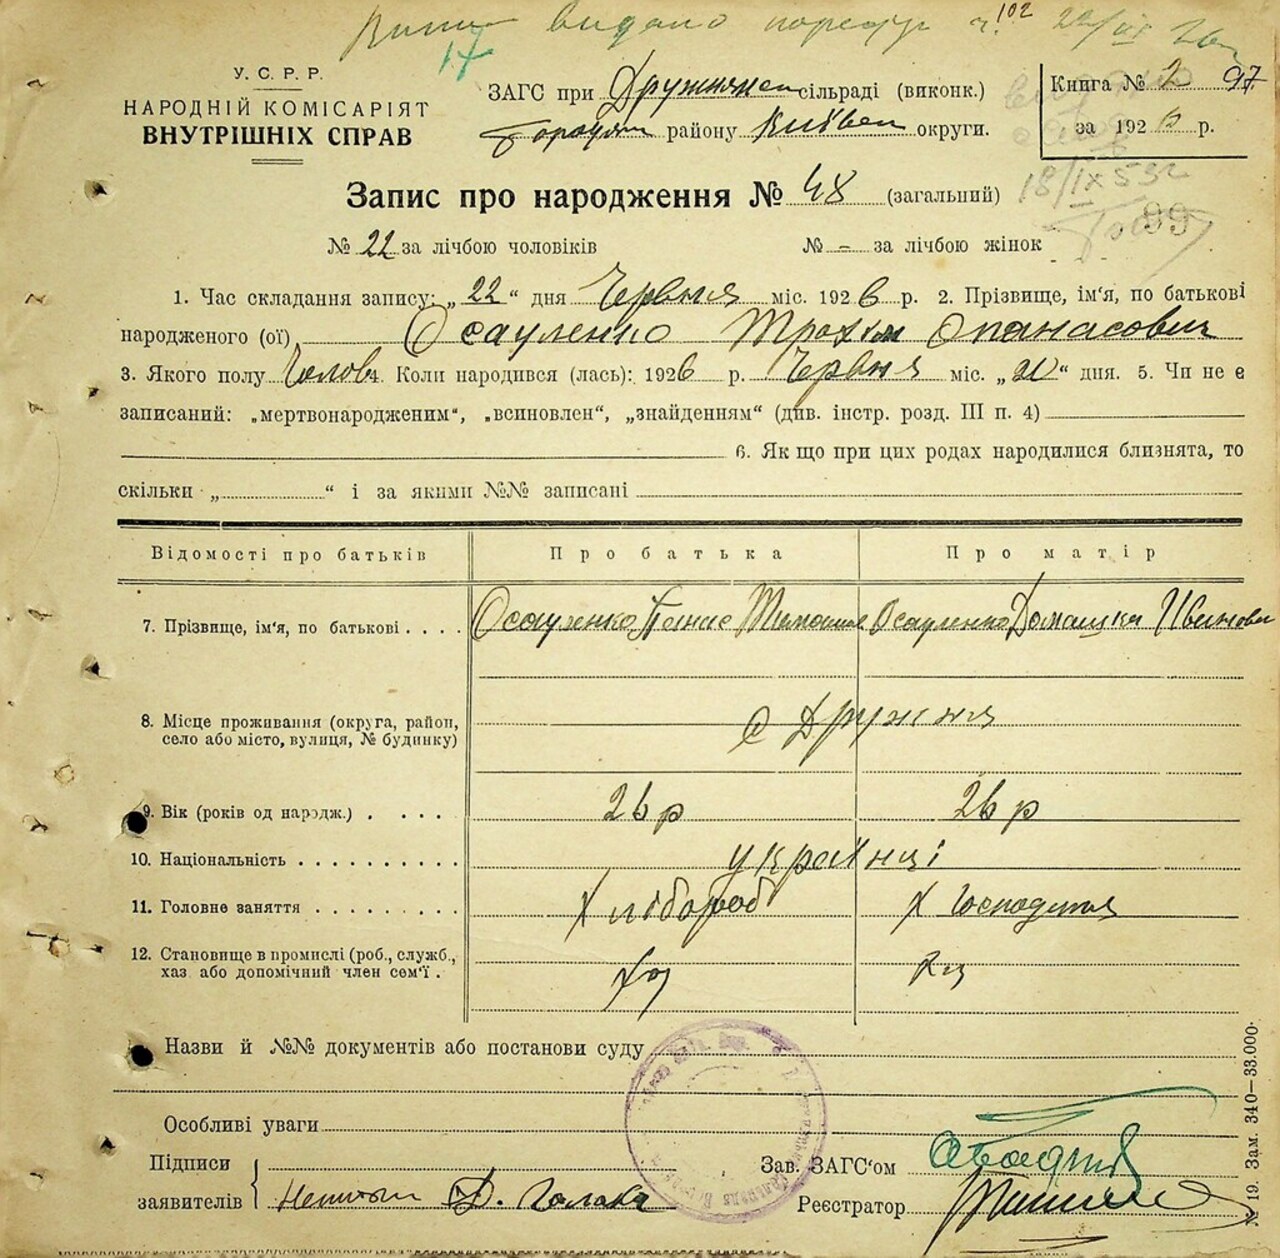 видано ч. 102
17
У. С. Р. Р.
НАРОДНІЙ КОМІСАРІЯТ
ВНУТРІШНІХ СПРАВ
ЗАГС при Дружнянск сільраді (виконк.)
району Київськ округи.
Книга № 2 97
за 1926 р.
18/IX 53
99
Запис про народження № 48 (загальний)
№ 22 за лічбою чоловіків № – за лічбою жінок
1. Час складання запису: „22“ дня Червня міс. 1926 р. 2. Прізвище, ім'я, по батькові
народженого (ої) Осауленко Трохим Опанасович
3. Якого полу Чолов 4. Коли народився (лась): 1926 р. Червня міс. „20“ дня. 5. Чи не є
записаний: „мертвонародженим“, „всиновлен“, „знайденням“ (див. інстр. розд. III п. 4)
6. Як що при цих родах народилися близнята, то
скільки „ “ і за якими №№ записані
Відомості про батьків Про батька Про матір
7. Прізвище, ім'я, по батькові . . . . Осауленко Панас Осауленко Домашка Иванови
8. Місце проживання (округа, район,
село або місто, вулиця, № будинку)
с Дружня
9. Вік (років од народж.) . . . . 26 р 26 р
10. Національність . . . . . . . . . . українці
11. Головне заняття . . . . . . . . . Хлібороб Х Господиня
12. Становище в промислі (роб., служб.,
хаз. або допомічний член сем'ї .
Назви й №№ документів або постанови суду
Особливі уваги
Підписи
заявителів
Зав. ЗАГС'ом
Реєстратор
№ 19. Зам. 340—33.000.